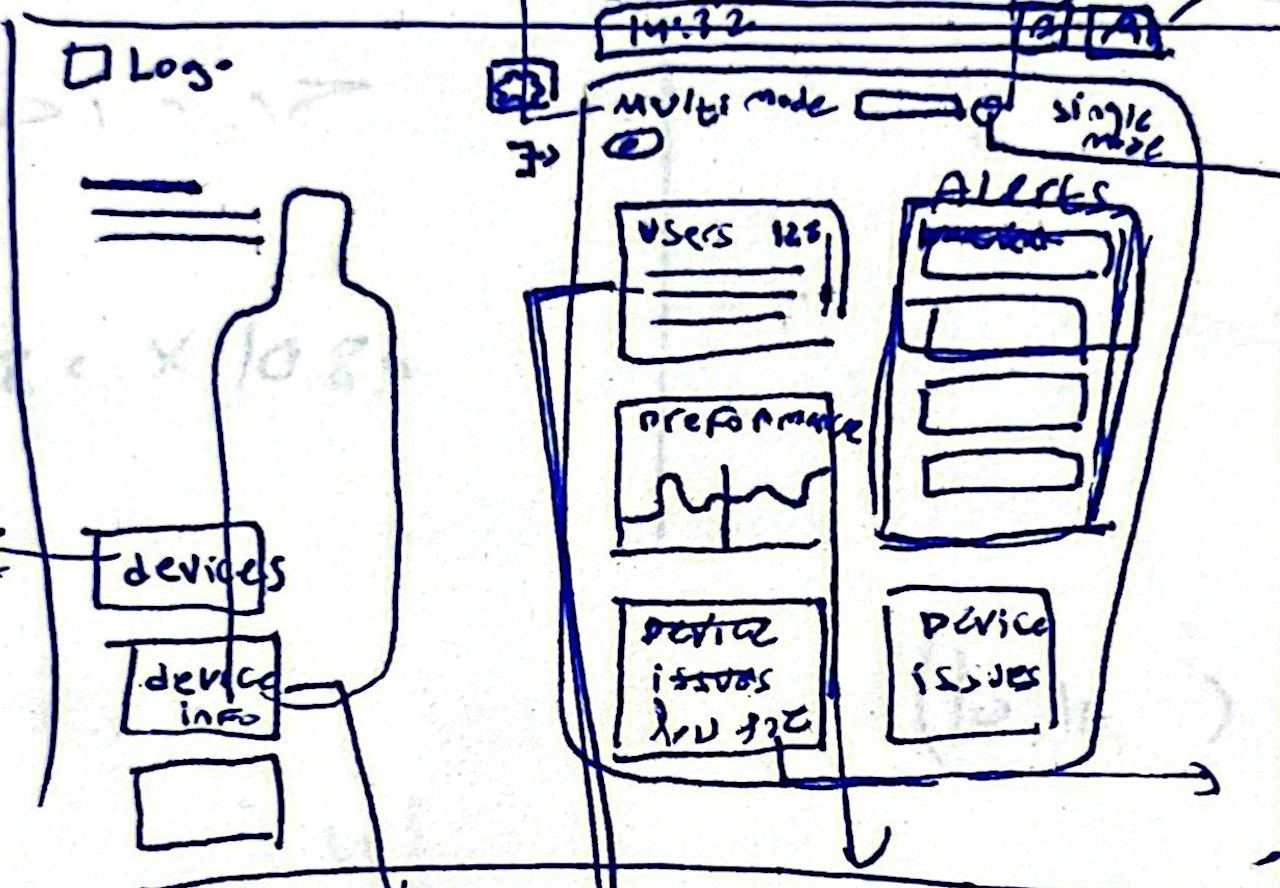 Logo
14:32
Multi mode
single
mode
Alerts
Users 128
preformance
devices
device
info
Device
issues
Device
issues